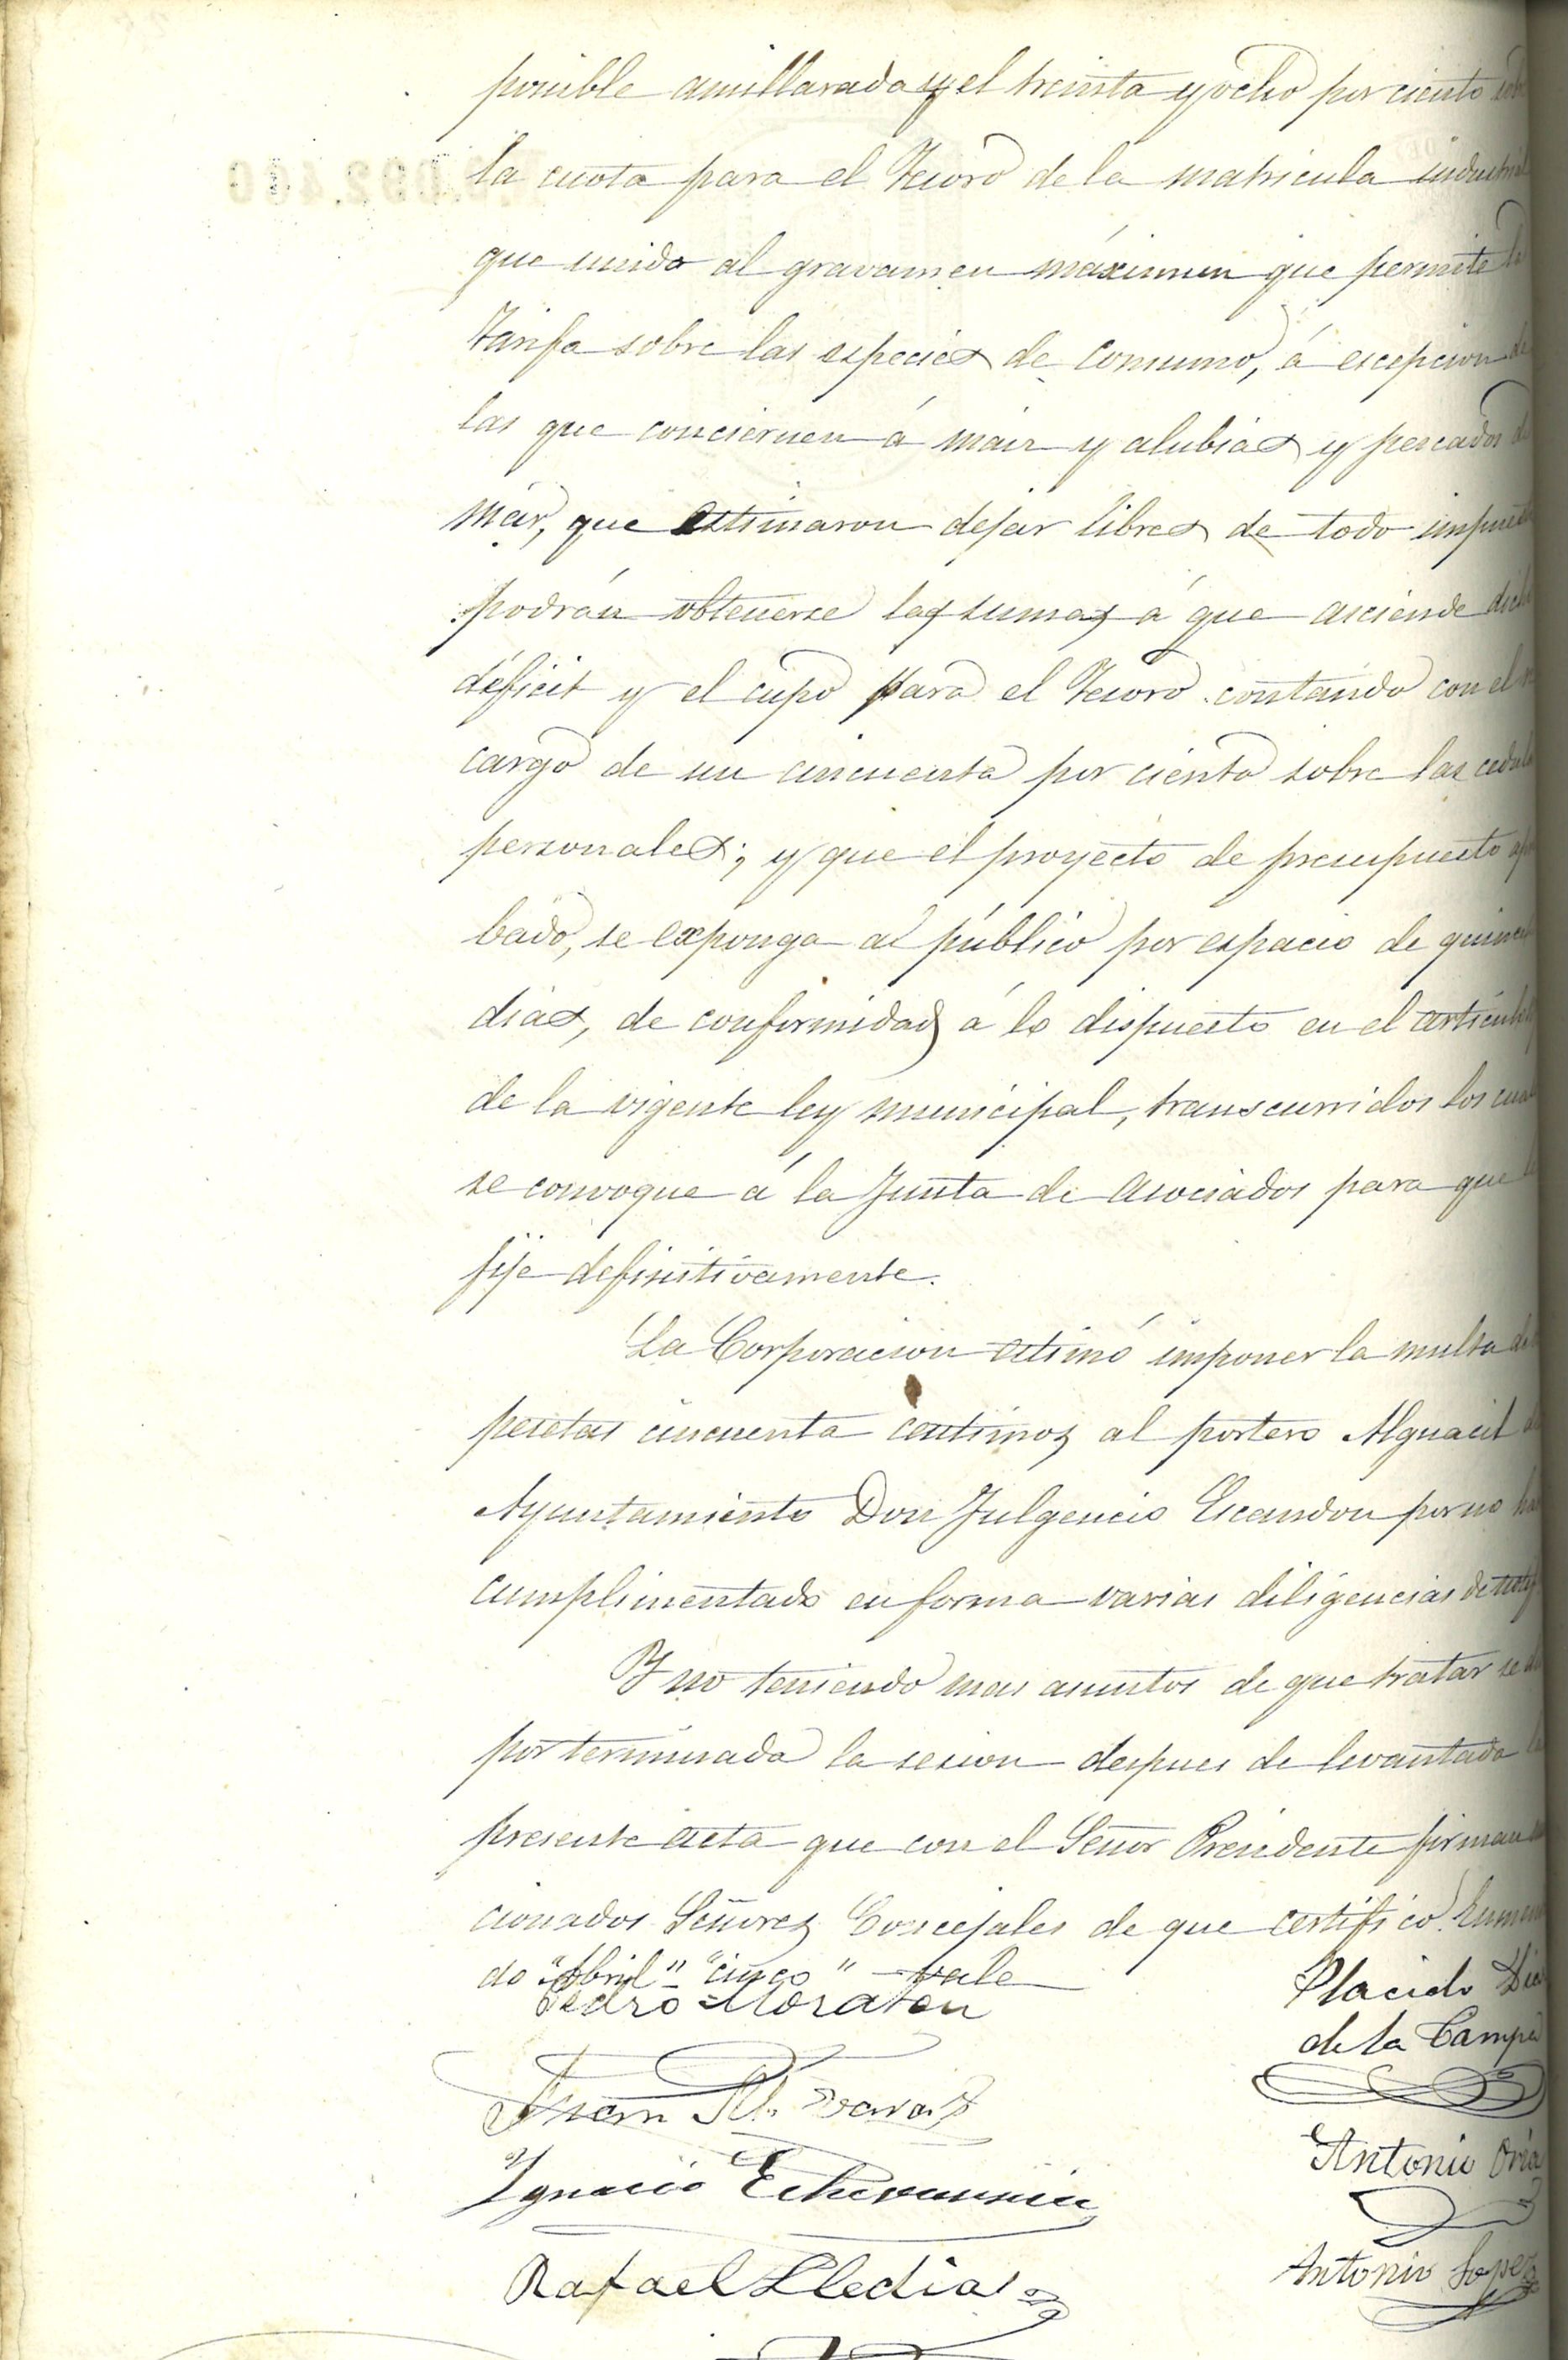 ponible amillarada y el treinta y ocho por ciento sobre
la cuota para el Tesoro de la matricula industrial
que unido al gravamen máximun que permite la
Tarifa sobre las especies de consumo, á escepcion de
las que conciernen á mair y alubias y pescados de
mar, que estimaron dejar libres de todo impuesto
podrán obtenerse las sumas á que asciende dicho
déficit y el cupo para el Tesoro contando con el
cargo de un cincuenta por ciento sobre las cedulas
personales; y que el proyecto de presupuesto
bado, se exponga al público por espacio de quince
dias, de conformidad á lo dispuesto en el articulo
de la vigente ley municipal, transcurridos los cuales
se convoque á la Junta de Asociados para que
fije definitivamente.
La Corporacion estimó imponer la multa de
pesetas cincuenta centimos al portero Alguacil
Ayuntamiento Don Fulgencio Escandon por no
cumplimentado en forma varias diligencias de
Y no teniendo mas asuntos de que tratar se
por terminada la sesion despues de levantada la
presente acta que con el Señor Presidente firman
cionados Señores Concejales de que certifico.
do "Abril" "cinco" - vale
Pedro Moraton
Placido Diaz
de la Campa
Juan M.
Antonio Oria
Ignacio Echevarria
Antonio Lopez
Rafael Lledias